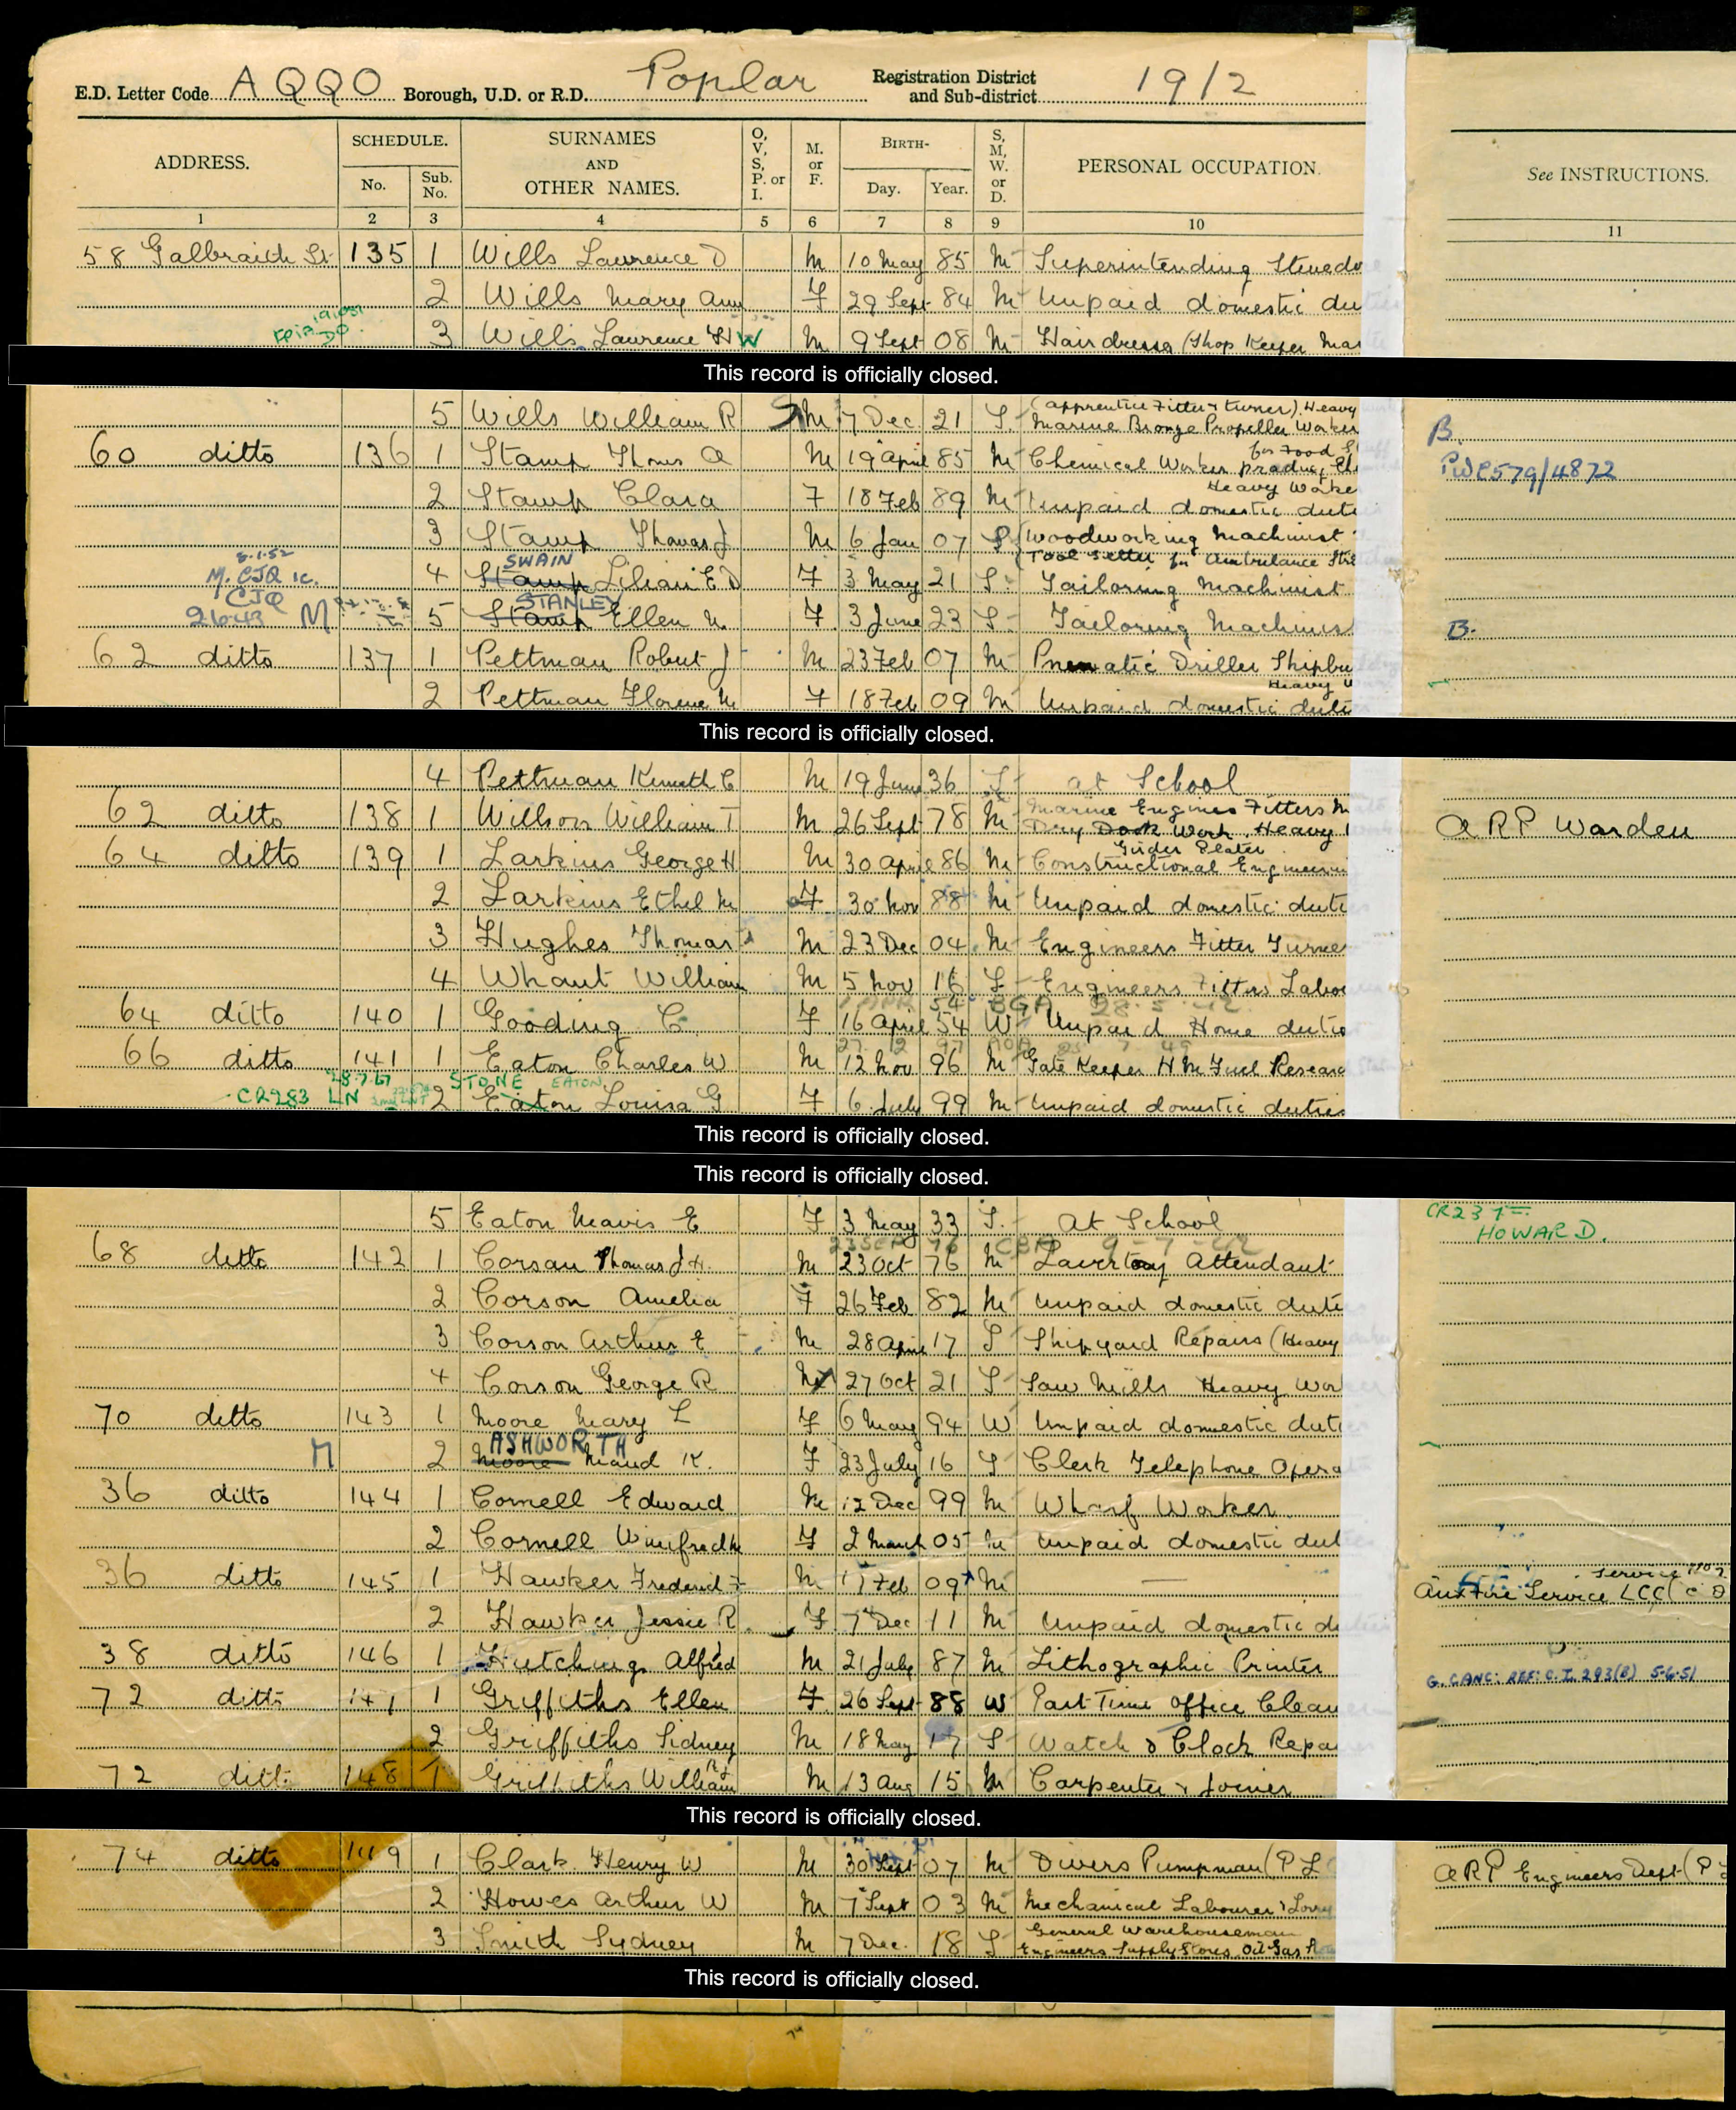 E.D. Letter Code AQQO Borough, U.D. or R.D. Poplar Registration District and Sub-district 19/2
ADDRESS. SCHEDULE. No. Sub. No. SURNAMES AND OTHER NAMES. O, V, S, P. or I. M. or F. BIRTH- Day. Year. S, M, W. or D. PERSONAL OCCUPATION. See INSTRUCTIONS.
1 2 3 4 5 6 7 8 9 10 11
58 Galbraith St 135 1 Wills Lawrence D M 10 May 85 M Superintending Stevedo
2 Wills Mary Ann F 29 Sept 84 M Unpaid domestic du
3 Wills Lawrence H W M 9 Sept 08 M Hairdresser (Shop Keeper Mas
This record is officially closed.
5 Wills William R M 7 Dec 21 S. (apprentice Fitter & turner). Heavy
Marine Bronze Propeller Worker
B.
60 ditto 136 1 Stamp Thomas A M 19 April 85 M Chemical Worker
PWC579/4872
2 Stamp Clara F 18 Feb 89 M Unpaid domestic duti
Heavy Worke
3 Stamp Thomas J M 6 Jan 07 S (Woodworking Machinist
(Tool Setter for Ambulance Stre
5.1.52
M. CJQ
SWAIN
4 Stamp Lilian E D F 3 May 21 S Tailoring Machinist
CJQ
M
STANLEY
5 Stamp Ellen M. F 3 June 23 S Tailoring Machinis
B.
62 ditto 137 1 Pettman Robert J M 23 Feb 07 M Pneumatic Driller Shipbu
Heavy W
2 Pettman Florence M F 18 Feb 09 M Unpaid domestic duti
This record is officially closed.
4 Pettman Kenneth C M 19 June 36 S at School
62 ditto 138 1 Willson William T M 26 Sept 78 M Marine Engines Fitters M
Dry Dock Work, Heavy
ARP Warden
64 ditto 139 1 Larkins George H M 30 April 86 M Girder Plater
Constructional Engineerin
2 Larkins Ethel M F 30 Nov 88 M Unpaid domestic duti
3 Hughes Thomas M 23 Dec 04 M Engineers Fitter Turner
4 Whant William M 5 Nov 16 S Engineers Fitters Labou
54 BGA
64 ditto 140 1 Gooding C F 16 April 54 W Unpaid Home dutie
66 ditto 141 1 Eaton Charles W M 12 Nov 96 M Gate Keeper H M Fuel Researc
28.7.67 STONE EATON
CR283 LN 2 Eaton Louisa G F 6 July 99 M Unpaid domestic duties
This record is officially closed.
This record is officially closed.
5 Eaton Mavis E F 3 May 33 S. At School
CR237
HOWARD.
68 ditto 142 1 Corsan Thomas J H. M 23 Oct 76 M Lavertory Attendant
2 Corson Amelia F 26 Feb 82 M Unpaid domestic duti
3 Corson Arthur E M 28 April 17 S Shipyard Repairs (Heavy
4 Corson George R M 27 Oct 21 S Saw Mills Heavy Wor
70 ditto 143 1 Moore Mary L F 6 May 94 W Unpaid domestic duti
ASHWORTH
M 2 Moore Maud K. F 23 July 16 S Clerk Telephone Opera
36 ditto 144 1 Cornell Edward M 12 Dec 99 M Wharf Worker
2 Cornell Winifred M F 2 March 05 M Unpaid domestic dut
36 ditto 145 1 Hawker Frederick F M 17 Feb 09 M —
Service
Aux Fire Service LCC
2 Hawker Jessie R. F 7 Dec 11 M Unpaid domestic du
38 ditto 146 1 Hutchings Alfred M 21 July 87 M Lithographic Printer
G. CANC: REF: C.I. 293(B) 5.6.51
72 ditto 147 1 Griffiths Ellen F 26 Sept 88 W Part Time Office Clean
2 Griffiths Sidney M 18 May 17 S Watch & Clock Repai
72 ditto 148 1 Griffiths William M 13 Aug 15 M Carpenter & Joiner
This record is officially closed.
74 ditto 149 1 Clark Henry W M 30 Sept 07 M Divers Pumpman (P L
ARP Engineers Dept (P
2 Howes Arthur W M 7 Sept 03 M Mechanical Labourer & Lorry
3 Smith Sydney M 7 Dec. 18 S General Warehouseman
Engineers Supply Stores Oil Gas
This record is officially closed.